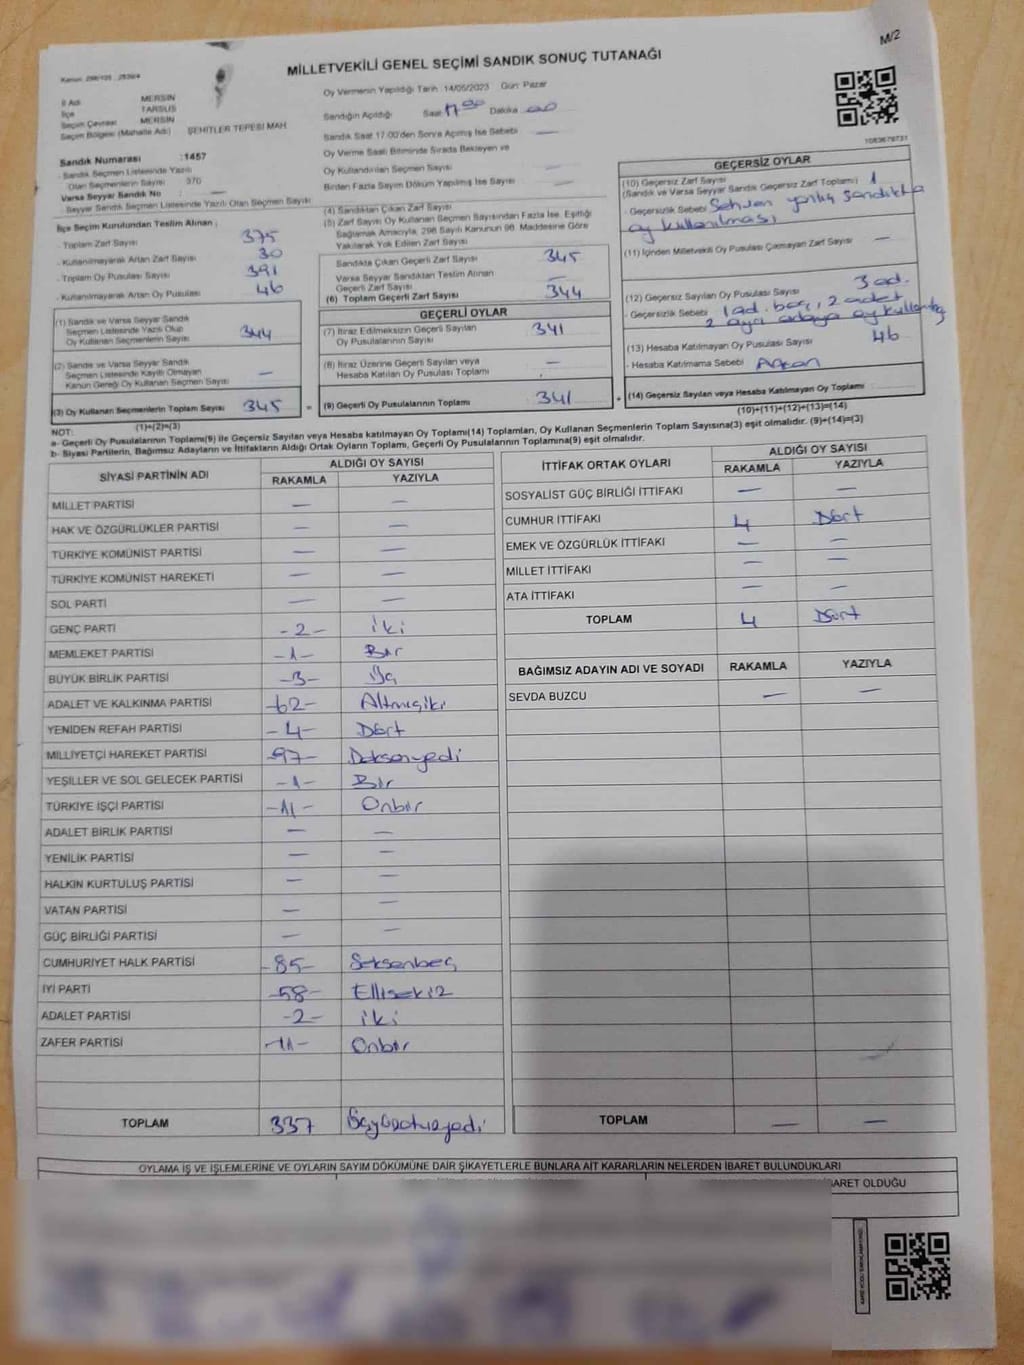 M/2
MİLLETVEKİLİ GENEL SEÇİMİ SANDIK SONUÇ TUTANAĞI
İl Adı MERSİN
İlçe TARSUS
Seçim Çevresi MERSİN
Seçim Bölgesi (Mahalle Adı) ŞEHİTLER TEPESİ MAH
Sandık Numarası :1457
- Sandık Seçmen Listesinde Yazılı
Olan Seçmenlerin Sayısı 376
Varsa Seyyar Sandık No —
- Seyyar Sandık Seçmen Listesinde Yazılı Olan Seçmen Sayısı
İlçe Seçim Kurulundan Teslim Alınan ;
- Toplam Zarf Sayısı 375
- Kullanılmayarak Artan Zarf Sayısı 30
- Toplam Oy Pusulası Sayısı 391
- Kullanılmayarak Artan Oy Pusulası 46
(1) Sandık ve Varsa Seyyar Sandık
Seçmen Listesinde Yazılı Olup
Oy Kullanan Seçmenlerin Sayısı 344
(2) Sandık ve Varsa Seyyar Sandık
Seçmen Listesinde Kayıtlı Olmayan
Kanun Gereği Oy Kullanan Seçmen Sayısı —
(3) Oy Kullanan Seçmenlerin Toplam Sayısı 345
(1)+(2)=(3)
Oy Vermenin Yapıldığı Tarih 14/05/2023 Gün: Pazar
Sandığın Açıldığı Saat 17 00 Dakika 00
Sandık Saat 17:00'den Sonra Açılmış İse Sebebi —
Oy Verme Saati Bitiminde Sırada Bekleyen ve
Oy Kullandırılan Seçmen Sayısı —
Birden Fazla Sayım Döküm Yapılmış İse Sayısı —
(4) Sandıktan Çıkan Zarf Sayısı
(5) Zarf Sayısı Oy Kullanan Seçmen Sayısından Fazla İse, Eşitliği
Sağlamak Amacıyla, 298 Sayılı Kanunun 98. Maddesine Göre
Yakılarak Yok Edilen Zarf Sayısı
Sandıkta Çıkan Geçerli Zarf Sayısı 345
Varsa Seyyar Sandıktan Teslim Alınan
Geçerli Zarf Sayısı —
(6) Toplam Geçerli Zarf Sayısı 344
GEÇERLİ OYLAR
(7) İtiraz Edilmeksizin Geçerli Sayılan
Oy Pusulalarının Sayısı 341
(8) İtiraz Üzerine Geçerli Sayılan veya
Hesaba Katılan Oy Pusulası Toplamı —
= (9) Geçerli Oy Pusulalarının Toplamı 341
1083679731
GEÇERSİZ OYLAR
(10) Geçersiz Zarf Sayısı
(Sandık ve Varsa Seyyar Sandık Geçersiz Zarf Toplamı) 1
- Geçersizlik Sebebi Sehven yanlış sandıkta
oy kullanılması
(11) İçinden Milletvekili Oy Pusulası Çıkmayan Zarf Sayısı —
(12) Geçersiz Sayılan Oy Pusulası Sayısı 3 ad.
- Geçersizlik Sebebi 1 ad. boş, 2 adet
2 ayrı
(13) Hesaba Katılmayan Oy Pusulası Sayısı 46
- Hesaba Katılmama Sebebi Artan
+ (14) Geçersiz Sayılan veya Hesaba Katılmayan Oy Toplamı
(10)+(11)+(12)+(13)=(14)
NOT:
a- Geçerli Oy Pusulalarının Toplamı(9) ile Geçersiz Sayılan veya Hesaba katılmayan Oy Toplamı(14) Toplamları, Oy Kullanan Seçmenlerin Toplam Sayısına(3) eşit olmalıdır. (9)+(14)=(3)
b- Siyasi Partilerin, Bağımsız Adayların ve İttifakların Aldığı Ortak Oyların Toplamı, Geçerli Oy Pusulalarının Toplamına(9) eşit olmalıdır.
SİYASİ PARTİNİN ADI ALDIĞI OY SAYISI
RAKAMLA YAZIYLA
MİLLET PARTİSİ — —
HAK VE ÖZGÜRLÜKLER PARTİSİ — —
TÜRKİYE KOMÜNİST PARTİSİ — —
TÜRKİYE KOMÜNİST HAREKETİ — —
SOL PARTİ — —
GENÇ PARTİ -2- iki
MEMLEKET PARTİSİ -1- Bir
BÜYÜK BİRLİK PARTİSİ -3- Üç
ADALET VE KALKINMA PARTİSİ -62- Altmışiki
YENİDEN REFAH PARTİSİ -4- Dört
MİLLİYETÇİ HAREKET PARTİSİ -97- Doksanyedi
YEŞİLLER VE SOL GELECEK PARTİSİ -1- Bir
TÜRKİYE İŞÇİ PARTİSİ -11- Onbir
ADALET BİRLİK PARTİSİ — —
YENİLİK PARTİSİ — —
HALKIN KURTULUŞ PARTİSİ — —
VATAN PARTİSİ — —
GÜÇ BİRLİĞİ PARTİSİ — —
CUMHURİYET HALK PARTİSİ -85- Seksenbeş
İYİ PARTİ -58- Ellisekiz
ADALET PARTİSİ -2- iki
ZAFER PARTİSİ -11- Onbir
TOPLAM 337 Üçyüzotuzyedi
İTTİFAK ORTAK OYLARI ALDIĞI OY SAYISI
RAKAMLA YAZIYLA
SOSYALİST GÜÇ BİRLİĞİ İTTİFAKI — —
CUMHUR İTTİFAKI 4 Dört
EMEK VE ÖZGÜRLÜK İTTİFAKI — —
MİLLET İTTİFAKI — —
ATA İTTİFAKI — —
TOPLAM 4 Dört
BAĞIMSIZ ADAYIN ADI VE SOYADI RAKAMLA YAZIYLA
SEVDA BUZCU — —
TOPLAM — —
OYLAMA İŞ VE İŞLEMLERİNE VE OYLARIN SAYIM DÖKÜMÜNE DAİR ŞİKAYETLERLE BUNLARA AİT KARARLARIN NELERDEN İBARET BULUNDUKLARI
İBARET OLDUĞU